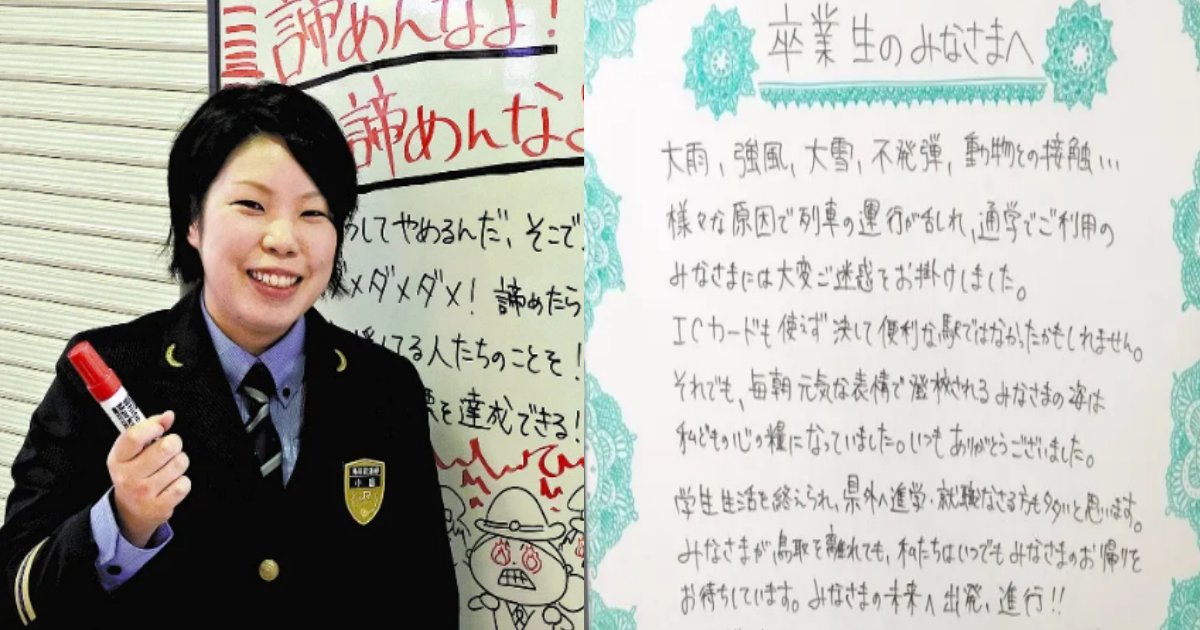 諦めんなよ!
諦めんなよ
してやめるんだ、そこで
ダメダメ! 諦めたら
てる人たちのことを!
を達成できる!
White
小笛
JR
卒業生のみなさまへ
大雨、強風、大雪、不発弾、動物との接触…
様々な原因で列車の運行が乱れ、通学でご利用の
みなさまには大変ご迷惑をお掛けしました。
ICカードも使えず決して便利な駅ではなかったかもしれません。
それでも、毎朝元気な表情で登校されるみなさまの姿は
私どもの心の糧になっていました。いつもありがとうございました。
学生生活を終えられ、県外へ進学・就職なさる方も多いと思います。
みなさまが鳥取を離れても、私たちはいつでもみなさまのお帰りを
お待ちしています。みなさまの未来へ出発、進行!!